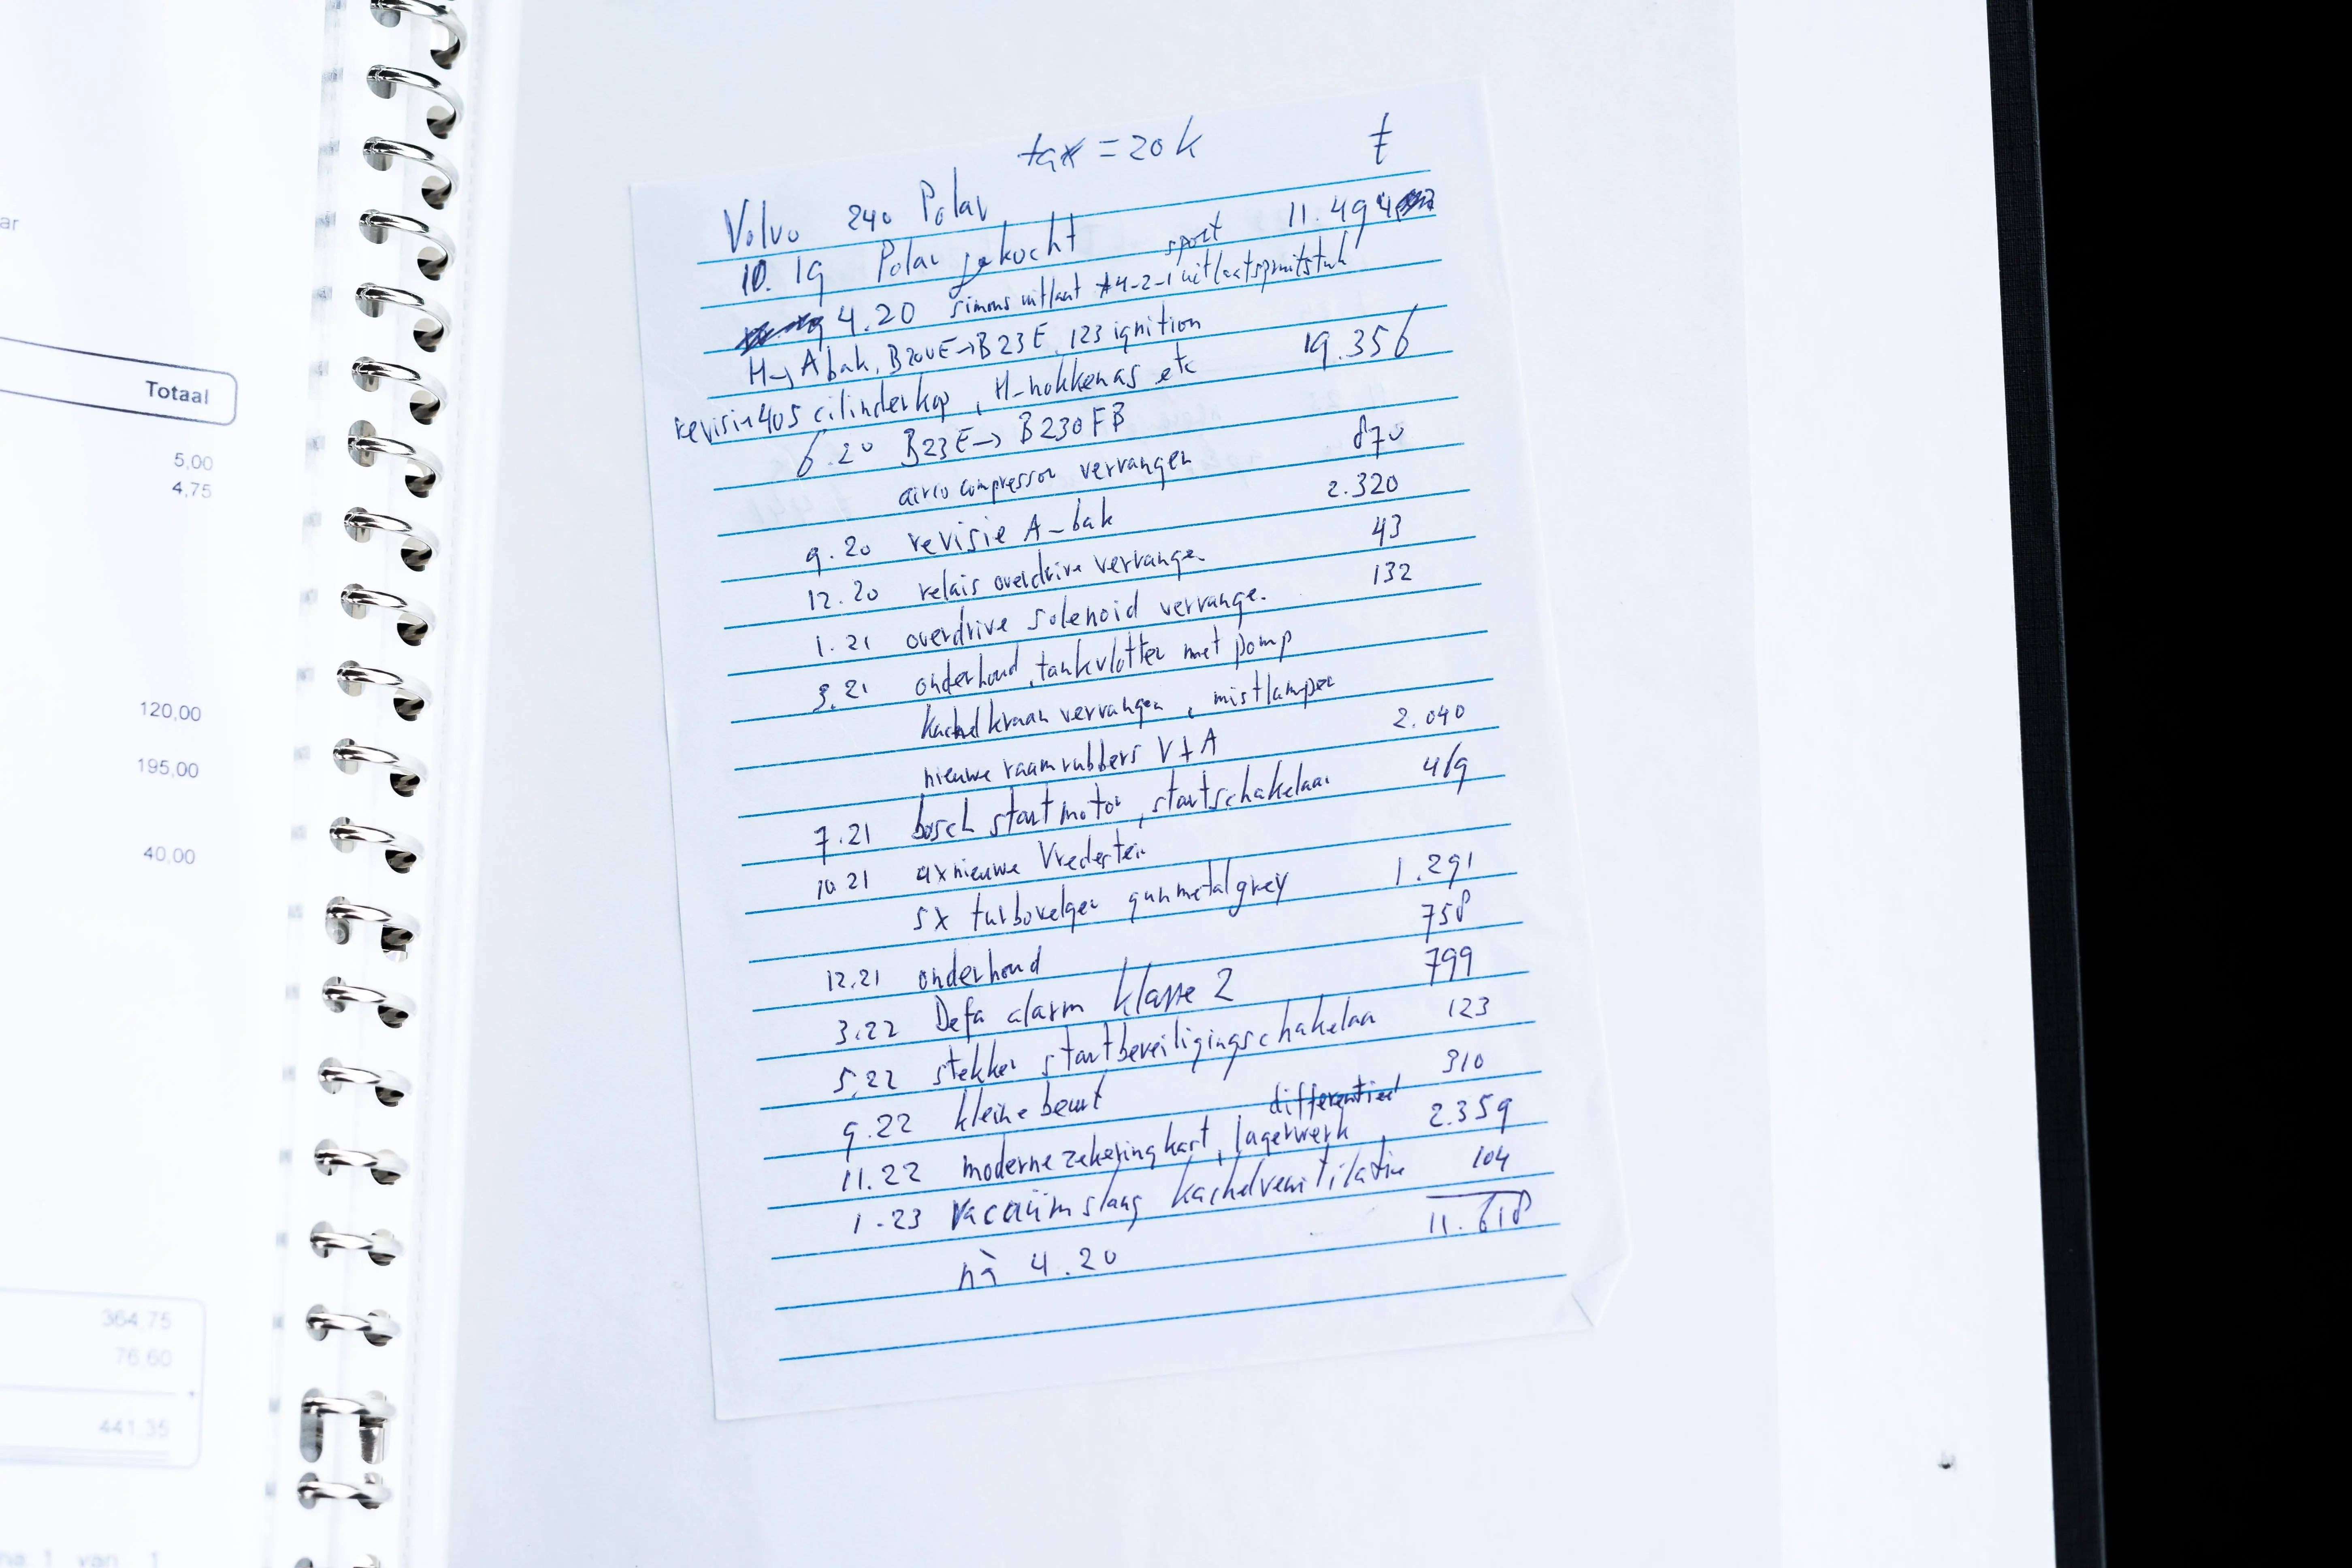 ar
Totaal
5,00
4,75
120,00
195,00
40,00
364,75
76,60
441,35
1 van 1
tax = 20k €
Volvo 240 Polar
10. 19 Polar gekocht 11.494
4.20 simons sport uitlaat 4-2-1 uitlaatspruitstuk
H→A bak, B200E→B23E, 123 ignition
revisie 405 cilinderkop, H-nokkenas etc 19.356
6.20 B23E→B230FB
airco compressor vervangen 870
9.20 revisie A-bak 2.320
12.20 relais overdrive vervange. 43
1.21 overdrive solenoid vervange. 132
3.21 onderhoud, tankvlotter met pomp
kachelkraan vervangen, mistlampen
nieuwe raamrubbers V+A 2.040
7.21 bosch startmotor, startschakelaar 469
10.21 4x nieuwe Vredestein
5x turbovelgen gunmetalgrey 1.291
12.21 onderhoud 758
3.22 Defa alarm klasse 2 799
5.22 stekker startbeveiligingschakelaar 123
9.22 kleine beurt 310
11.22 moderne zekeringkast, lagerwerk differentieel 2.359
1-23 vacuümslang kachelventilatie 104
nà 4.20 11.618